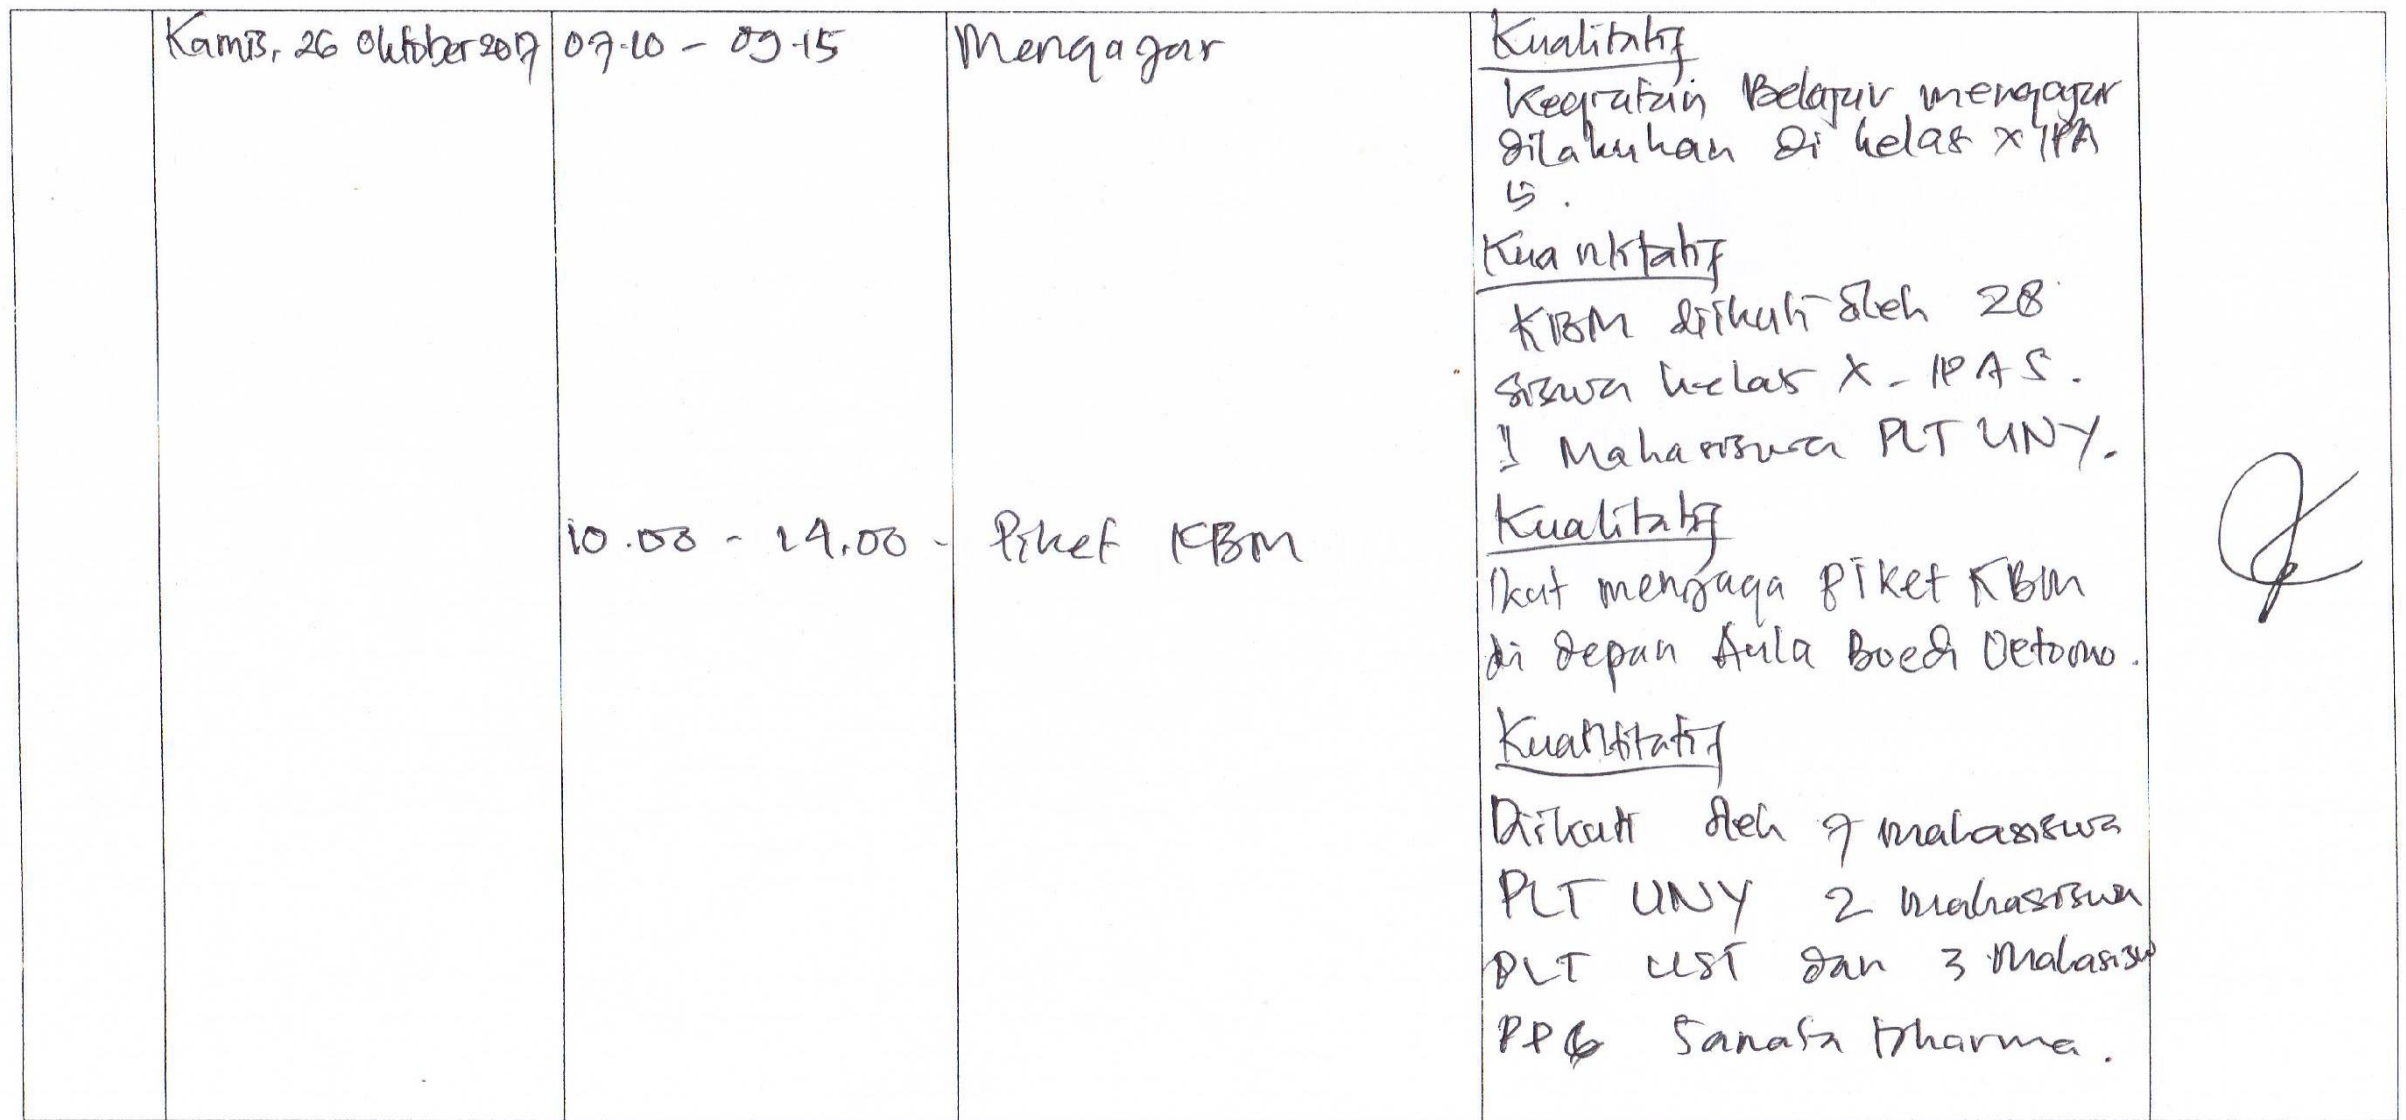 Kamis, 26 Oktober 2017 07.10 - 09.15 Mengajar
Kualitatif
Kegiatan Belajar mengajar
dilakukan di kelas X IPA
5.
Kuantitatif
KBM diikuti oleh 28
siswa kelas X - IPA 5.
1 Mahasiswa PLT UNY.
10.00 - 14.00 - Piket KBM
Kualitatif
Ikut menjaga piket KBM
di depan Aula Boedi Oetomo.
Kuantitatif
Diikuti oleh 7 mahasiswa
PLT UNY 2 mahasiswa
PLT UST dan 3 Mahasisw
PPG Sanata Dharma.